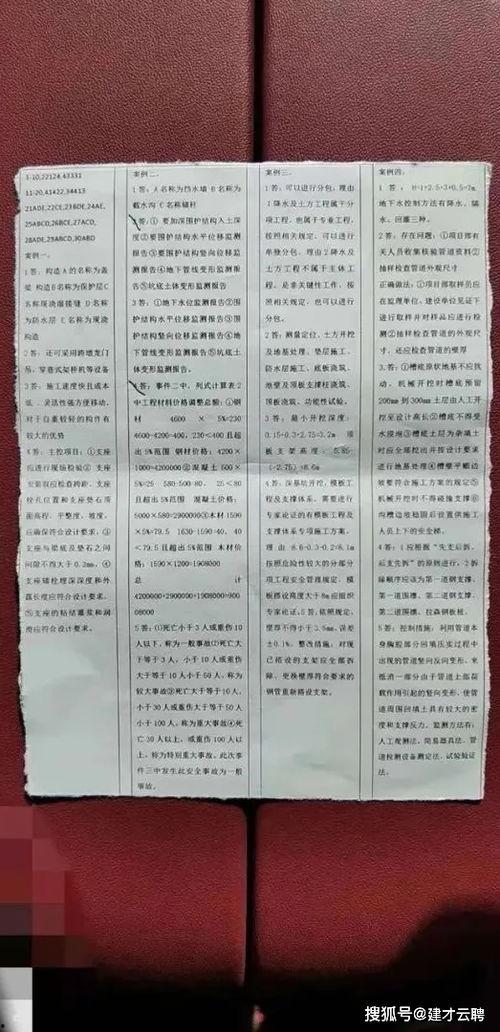 1-10,22124,43331
11-20,41422,34413
21ADE,22CE,23BDE,24AE,
25ABCD,26BCE,27ACD,
28ADE,29ABCD,30ABD
案例一：
1答：构造A的名称为盖
梁 构造B名称为保护层C
名称现浇湿接缝 D名称
为防水层 E名称为现浇
构造
2答：还可采用跨墩龙门
吊、穿巷式架桥机等设备
3答：施工速度快且成本
低、灵活性强方便移动，
对于自重较轻的构件有
较大的优势
4答：主控项目：①支座
应进行现场检验②支座
安装前应检查跨距、支座
栓孔位置和支座垫石顶
面高程、平整度、坡度，
应确保符合设计要求。③
支座与梁底及垫石之间
间隙不得大于0.3mm。④
支座锚栓埋深深度和外
露长度应符合设计要求。
⑤支座的粘结灌浆和润
滑应符合设计要求。
案例二、
1答：A名称为挡水墙 B名称为
截水沟 C名称锚杆
2答：①要加深围护结构入土深
度②要围护结构水平位移监测
报告③要围护结构竖向位移监
测报告④地下管线变形监测报
告⑤坑底土体变形监测报告
3答：①地下水位监测报告②围
护结构水平位移监测报告③围
护结构竖向位移监测报告④地
下管线变形监测报告⑤坑底土
体变形监测报告
4答：事件二中，列式计算表2
中工程材料价格调整总额：①钢
材 4600 × 5%=230
4600-4200=400，230＜400且超
出5%范围 钢材价格：4200×
1000=4200000②混凝土500×
5%=25 580-500=80，25＜80
且超出5%范围 混凝土价格：
5000×580=2900000③木材1590
×5%=79.5 1630-1590=40，40
＜79.5且超出5%范围 木材价
格：1590×1200=1908000
总 计
4200000+2900000+1908000=90
08000
5答：①死亡小于3人或重伤10
人以下，称为一般事故②死亡大
于等于3人，小于10人或重伤
大于等于10人小于50人，称为
较大事故③死亡大于等于10人，
小于30人或重伤大于等于50人
小于100人，称为重大事故④死
亡30人以上，或重伤100人以
上，称为特别重大事故。此次事
件三中发生此安全事故为一般
事故。
案例三、
1答：可以进行分包；理由
1降水及土方工程属于分
项工程，也属于专业工程，
按照相关规定，可以进行
单独分包。理由2降水及
土方工程不属于主体工
程，是非关键性工作，按
照相关规定，也可以进行
分包。
2答：测量定位、土方开挖
及地基处理、垫层施工、
防水层施工、底板浇筑、
地壁及顶板支撑柱浇筑、
顶板浇筑、功能性试验。
3答：最小开挖深度：
0.15+0.3+2.75=3.2m 顶
板支架高度：5.85-
（-2.75）=8.6m
4答：深基坑开挖，模板工
程及支撑体系，需要进行
专家论证的有模板工程及
支撑体系专项施工方案。
理由=8.6-0.3-0.2=8.1m
按照危险性较大的分部分
项工程安全管理规定，模
板搭设高度大于8m应组织
专家论证。5答：依照规定，
壁厚不得小于3.5mm，误差
±0.1%。整改措施：对现
已搭设的支架应全部拆
除，更换壁厚符合要求的
钢管重新搭设支架。
案例四、
1答：H=1+2.5+3+0.5=7m。
地下水控制方法有降水、隔
水、回灌三种。
2答：存在问题：①项目部有
关人员收集核验管道资料②
抽样检查管道外观尺寸
正确做法：①项目部取样员应
在监理单位、建设单位见证下
进行取样并对样品应进行检
测②抽样检查管道的外观尺
寸，还应检查管道的壁厚
3答：①槽底原状地基不应扰
动，机械开挖时槽底预留
200mm到300mm土层由人工开
挖至设计高长②槽底不得受
水浸泡③槽底土层为杂填土
时应全部挖出并按设计要求
进行地基处理④槽壁平顺边
坡要符合施工方案的规定⑤
机械开挖时不得碰撞支撑⑥
沟槽边坡稳固后设置供施工
人员上下的安全梯。
4答：1应根据“先支后拆、
后支先拆”的原则进行。2拆
除顺序应该为第一道钢支撑、
第一道围檩、第二道钢支撑、
第二道围檩、拉森钢板桩。
5答：控制措施：利用管道本
身胸腋部分回填压实过程中
出现的管道竖向反向变形，来
抵消一部分由于管道上部荷
载作用引起的竖向变形，使管
道周围回填土具有较大的密
度和支撑反力。监测方法有：
人工观测法、简易器具法、管
道检测设备测定法、试验验证
法。
搜狐号@建才云聘